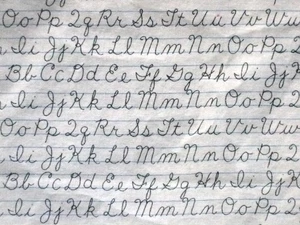 Oo Pp Qq Rr Ss Tt Uu Vv Ww
Ii Jj Kk Ll Mm Nn Oo Pp Q
Bb Cc Dd Ee Ff Gg Hh Ii Jj
Ii Jj Kk Ll Mm Nn Oo Pp Q
Oo Pp Qq Rr Ss Tt Uu Vv Ww
Ii Jj Kk Ll Mm Nn Oo Pp Q
Bb Cc Dd Ee Ff Gg Hh Ii Jj K
Ii Jj Kk Ll Mm Nn Oo Pp Q